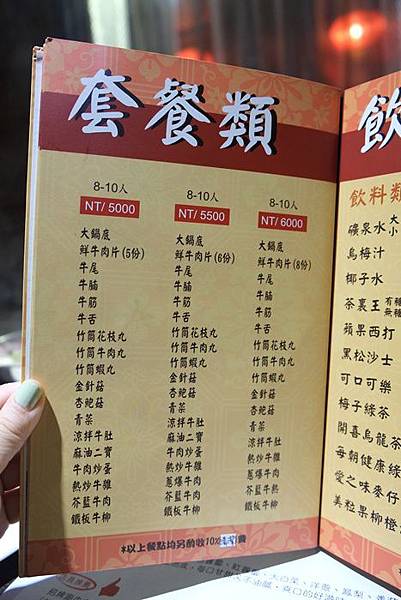 套餐類
8-10人
NT/ 5000
大鍋底
鮮牛肉片(5份)
牛尾
牛腩
牛筋
牛舌
竹筒花枝丸
竹筒牛肉丸
竹筒蝦丸
金針菇
杏鮑菇
青菜
涼拌牛肚
麻油二寶
牛肉炒蛋
熱炒牛雜
芥藍牛肉
鐵板牛柳
8-10人
NT/ 5500
大鍋底
鮮牛肉片(6份)
牛尾
牛腩
牛筋
牛舌
竹筒花枝丸
竹筒牛肉丸
竹筒蝦丸
金針菇
杏鮑菇
青菜
涼拌牛肚
麻油二寶
牛肉炒蛋
熱炒牛雜
蔥爆牛肉
芥藍牛肉
鐵板牛柳
8-10人
NT/ 6000
大鍋底
鮮牛肉片(8份)
牛尾
牛腩
牛筋
牛舌
竹筒花枝丸
竹筒牛肉丸
竹筒蝦丸
金針菇
杏鮑菇
青菜
涼拌牛肚
麻油二寶
牛肉炒蛋
熱炒牛雜
蔥爆牛肉
芥藍牛肉
鐵板牛柳
*以上餐點均另酌收10%
飲
飲料類
礦泉水 大 小
烏梅汁
椰子水
茶裏王 有糖 無糖
蘋果西打
黑松沙士
可口可樂
梅子綠茶
開喜烏龍茶
每朝健康綠
愛之味麥仔
美粒果柳橙